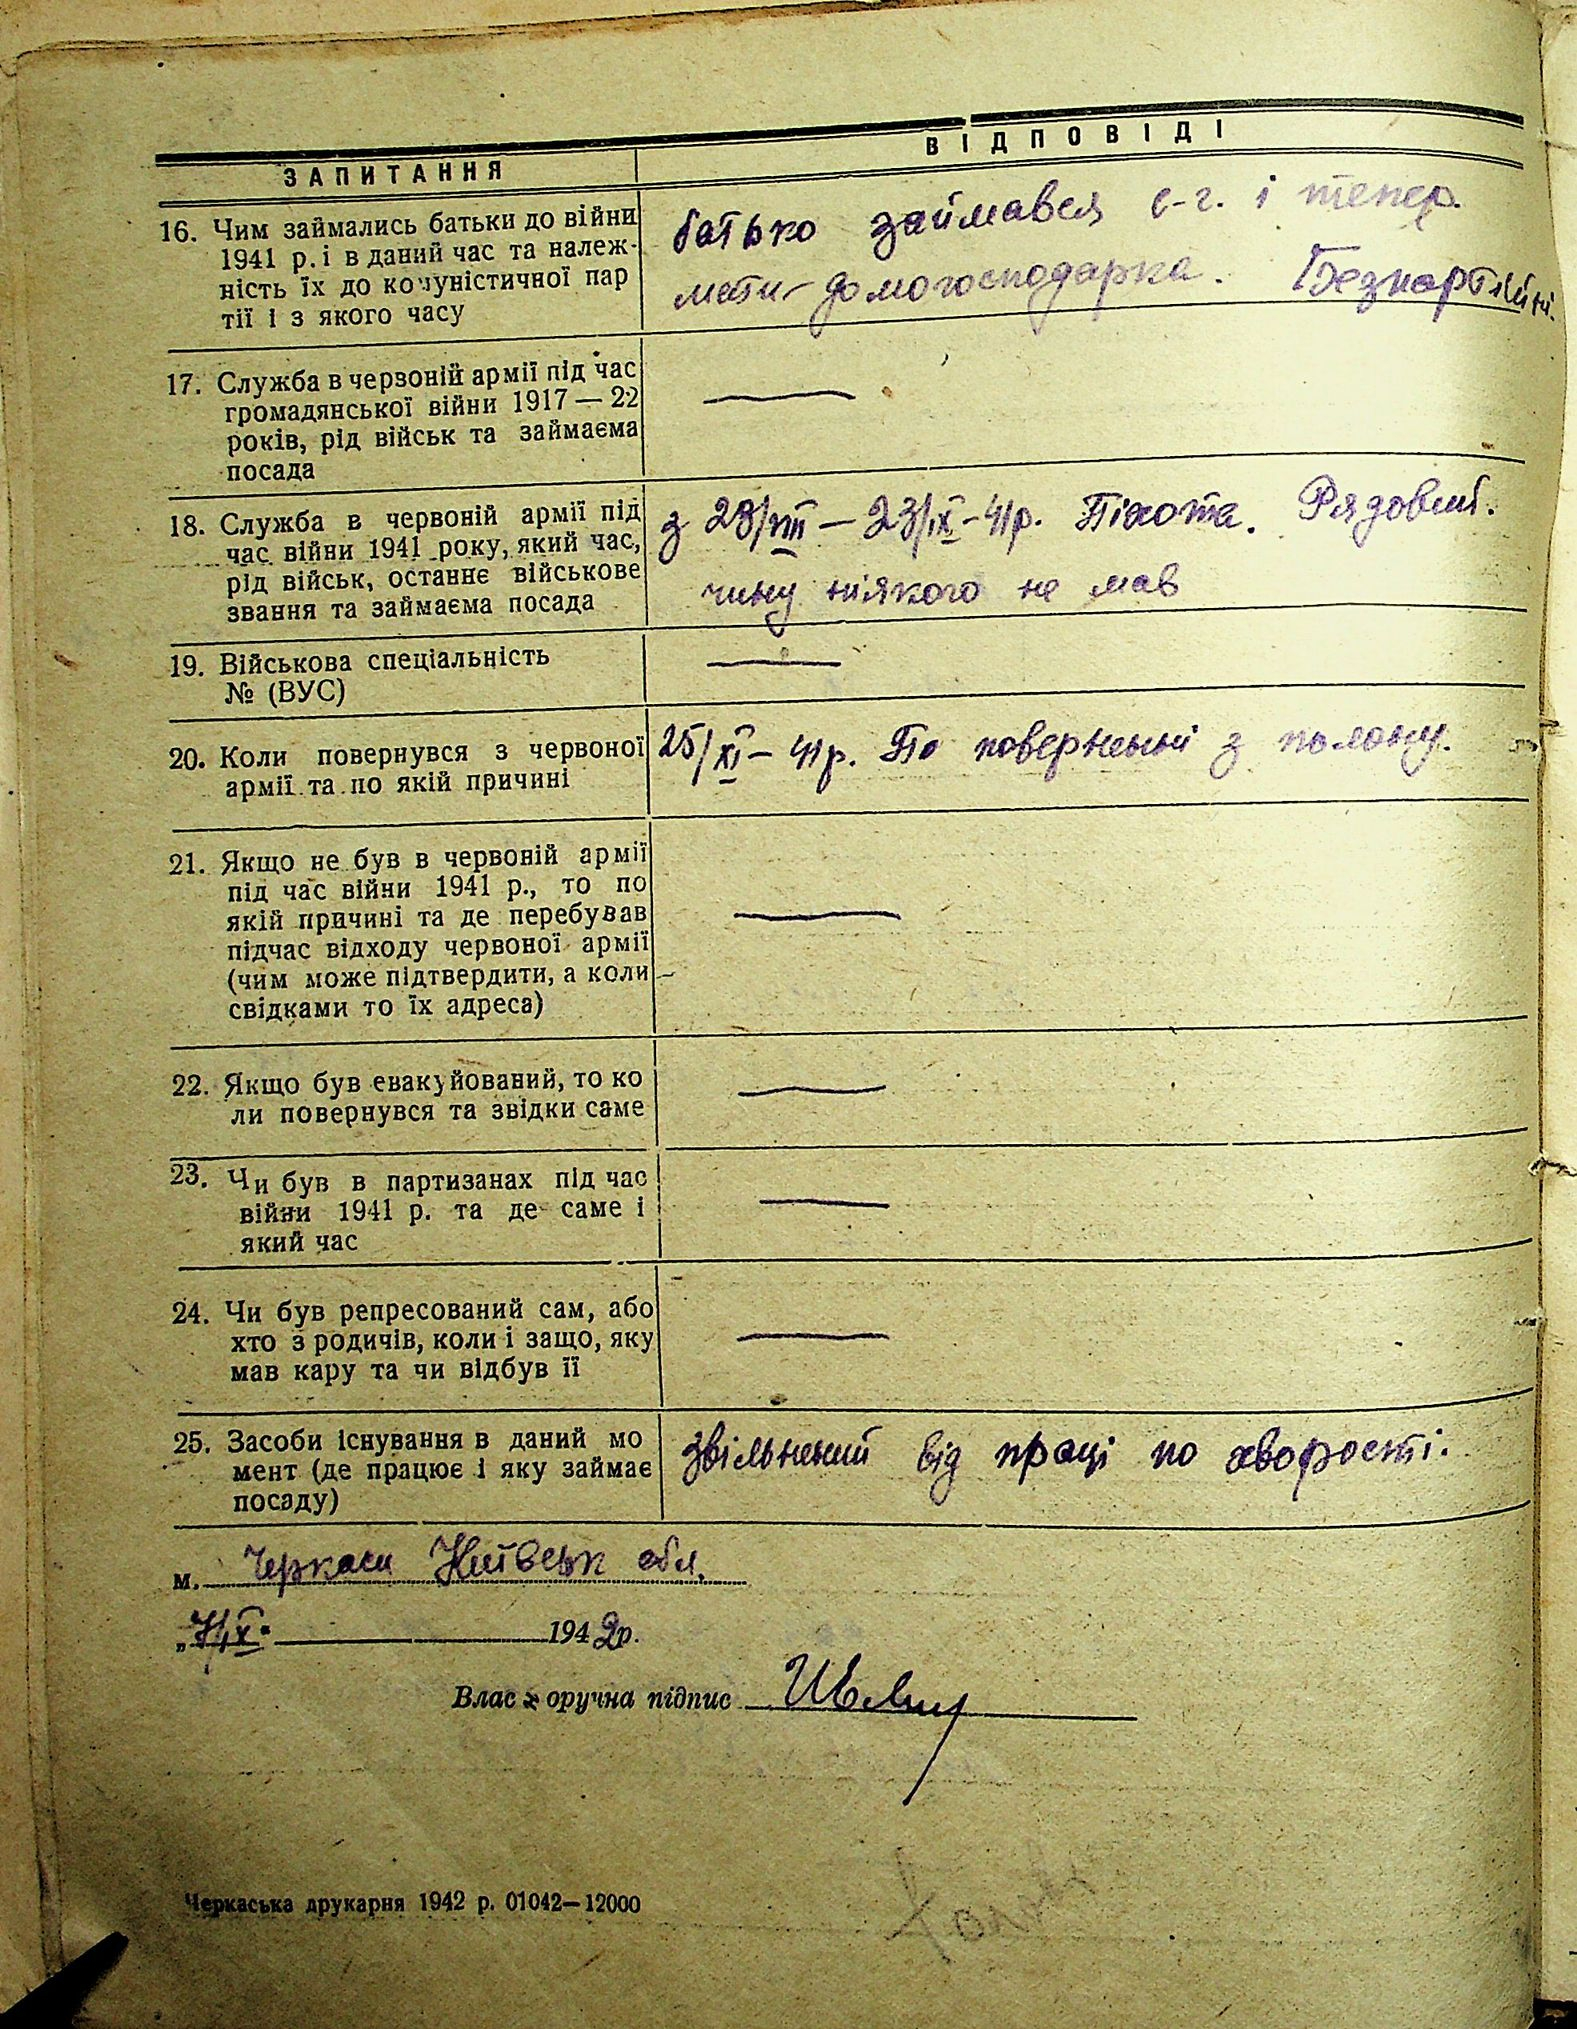 ЗАПИТАННЯ
ВІДПОВІДІ
16. Чим займались батьки до війни
1941 р. і в даний час та належ-
ність їх до комуністичної пар
тії і з якого часу
батько займався с-г. і тепер.
мати - домогосподарка. Безпартійні.
17. Служба в червоній армії під час
громадянської війни 1917 — 22
років, рід військ та займаєма
посада
—
18. Служба в червоній армії під
час війни 1941 року, який час,
рід військ, останнє військове
звання та займаєма посада
з 23/VIII — 23/IX - 41 р. Піхота. Рядовий.
чину ніякого не мав
19. Військова спеціальність
№ (ВУС)
—
20. Коли повернувся з червоної
армії та по якій причині
25/XI - 41 р. По поверненні з полону.
21. Якщо не був в червоній армії
під час війни 1941 р., то по
якій причині та де перебував
підчас відходу червоної армії
(чим може підтвердити, а коли
свідками то їх адреса)
—
22. Якщо був евакуйований, то ко
ли повернувся та звідки саме
—
23. Чи був в партизанах під час
війни 1941 р. та де саме і
який час
—
24. Чи був репресований сам, або
хто з родичів, коли і защо, яку
мав кару та чи відбув її
—
25. Засоби існування в даний мо
мент (де працює і яку займає
посаду)
звільнений від праці по хворості.
м. Черкаси Київськ обл.
1942 р.
Власноручна підпис
Черкаська друкарня 1942 р. 01042—12000